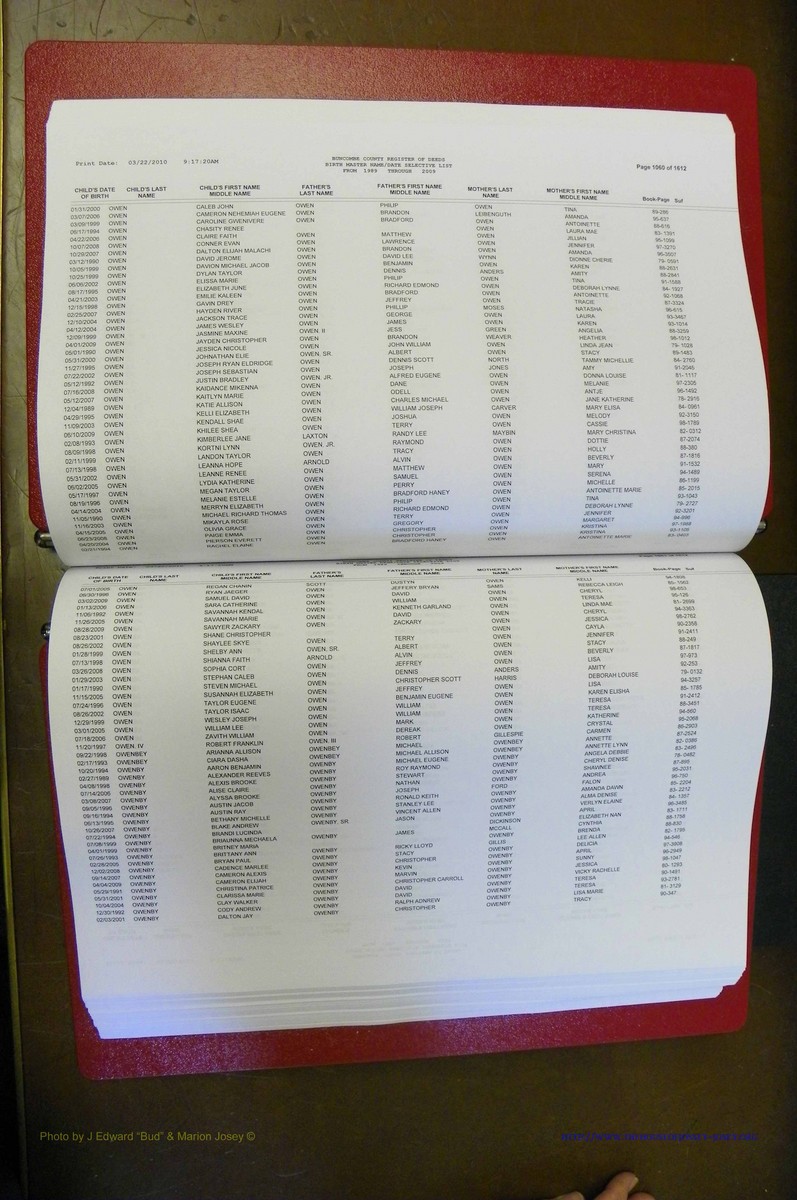 Print Date: 03/22/2010 9:17:20AM
BUNCOMBE COUNTY REGISTER OF DEEDS
BIRTH MASTER NAME/DATE SELECTIVE LIST
FROM 1989 THROUGH 2009
Page 1060 of 1612
CHILD'S DATE OF BIRTH CHILD'S LAST NAME CHILD'S FIRST NAME MIDDLE NAME FATHER'S LAST NAME FATHER'S FIRST NAME MIDDLE NAME MOTHER'S LAST NAME MOTHER'S FIRST NAME MIDDLE NAME Book-Page Suf
01/31/2000 OWEN CALEB JOHN OWEN PHILIP OWEN TINA 89-286
03/07/2006 OWEN CAMERON NEHEMIAH EUGENE OWEN BRANDON LEIBENGUTH AMANDA 95-637
03/09/1999 OWEN CAROLINE GWENIVERE OWEN BRADFORD OWEN ANTOINETTE 88-616
06/17/1994 OWEN CHASITY RENEE OWEN LAURA MAE 83-1391
04/22/2006 OWEN CLAIRE FAITH OWEN MATTHEW OWEN JILLIAN 95-1099
10/07/2008 OWEN CONNER EVAN OWEN LAWRENCE OWEN JENNIFER 97-3270
10/29/2007 OWEN DALTON ELIJAH MALACHI OWEN BRANDON OWEN AMANDA 96-3507
03/12/1990 OWEN DAVID JEROME OWEN DAVID LEE WYNN DIONNE CHERIE 79-0591
10/05/1999 OWEN DAVION MICHAEL JACOB OWEN BENJAMIN OWEN KAREN 88-2631
10/25/1999 OWEN DYLAN TAYLOR OWEN DENNIS ANDERS AMITY 88-2841
06/06/2002 OWEN ELISSA MARIE OWEN PHILIP OWEN TINA 91-1588
08/17/1995 OWEN ELIZABETH JUNE OWEN RICHARD EDMOND OWEN DEBORAH LYNNE 84-1927
04/21/2003 OWEN EMILIE KALEEN OWEN BRADFORD OWEN ANTOINETTE 92-1068
12/15/1998 OWEN GAVIN DREY OWEN JEFFREY OWEN TRACIE 87-3324
02/25/2007 OWEN HAYDEN RIVER OWEN PHILLIP MOSES NATASHA 96-615
12/10/2004 OWEN JACKSON TRACE OWEN GEORGE OWEN LAURA 93-3467
04/12/2004 OWEN JAMES WESLEY OWEN JAMES OWEN KAREN 93-1014
12/09/1999 OWEN JASMINE MAXINE OWEN, II JESS GREEN ANGELIA 88-3259
04/01/2009 OWEN JAYDEN CHRISTOPHER OWEN BRANDON WEAVER HEATHER 98-1012
05/01/1990 OWEN JESSICA NICOLE OWEN JOHN WILLIAM OWEN LINDA JEAN 79-1028
05/31/2000 OWEN JOHNATHAN ELIE OWEN, SR. ALBERT OWEN STACY 89-1483
11/27/1995 OWEN JOSEPH RYAN ELDRIDGE OWEN DENNIS SCOTT NORTH TAMMY MICHELLIE 84-2760
07/22/2002 OWEN JOSEPH SEBASTIAN OWEN JOSEPH JONES AMY 91-2046
05/12/1992 OWEN JUSTIN BRADLEY OWEN, JR. ALFRED EUGENE OWEN DONNA LOUISE 81-1117
07/16/2008 OWEN KAIDANCE MIKENNA OWEN DANE OWEN MELANIE 97-2305
05/12/2007 OWEN KAITLYN MARIE OWEN ODELL OWEN ANTJE 96-1492
12/04/1989 OWEN KATIE ALLISON OWEN CHARLES MICHAEL OWEN JANE KATHERINE 78-2916
04/29/1995 OWEN KELLI ELIZABETH OWEN WILLIAM JOSEPH CARVER MARY ELISA 84-0961
11/09/2003 OWEN KENDALL SHAE OWEN JOSHUA OWEN MELODY 92-3150
06/10/2009 OWEN KHILEE SHEA OWEN TERRY OWEN CASSIE 98-1789
02/08/1993 OWEN KIMBERLEE JANE LAXTON RANDY LEE MAYBIN MARY CHRISTINA 82-0312
08/09/1998 OWEN KORTNI LYNN OWEN, JR. RAYMOND OWEN DOTTIE 87-2074
02/11/1999 OWEN LANDON TAYLOR OWEN TRACY OWEN HOLLY 88-380
07/13/1998 OWEN LEANNA HOPE ARNOLD ALVIN OWEN BEVERLY 87-1816
05/31/2002 OWEN LEANNE RENEE OWEN MATTHEW OWEN MARY 91-1532
06/02/2005 OWEN LYDIA KATHERINE OWEN SAMUEL OWEN SERENA 94-1489
05/17/1997 OWEN MEGAN TAYLOR OWEN PERRY OWEN MICHELLE 86-1199
08/19/1996 OWEN MELANIE ESTELLE OWEN BRADFORD HANEY OWEN ANTOINETTE MARIE 85-2015
04/14/2004 OWEN MERRYN ELIZABETH OWEN PHILIP OWEN TINA 93-1043
11/05/1990 OWEN MICHAEL RICHARD THOMAS OWEN RICHARD EDMOND OWEN DEBORAH LYNNE 79-2727
11/16/2003 OWEN MIKAYLA ROSE OWEN TERRY OWEN JENNIFER 92-3201
04/15/2005 OWEN OLIVIA GRACE OWEN GREGORY OWEN MARGARET 94-996
06/23/2008 OWEN PAIGE EMMA OWEN CHRISTOPHER OWEN KRISTINA 97-1988
04/20/2004 OWEN PIERSON EVERETT OWEN CHRISTOPHER OWEN KRISTINA 93-1105
02/21/1994 OWEN RACHEL ELAINE OWEN BRADFORD HANEY OWEN ANTOINETTE MARIE 83-0405
CHILD'S DATE OF BIRTH CHILD'S LAST NAME CHILD'S FIRST NAME MIDDLE NAME FATHER'S LAST NAME FATHER'S FIRST NAME MIDDLE NAME MOTHER'S LAST NAME MOTHER'S FIRST NAME MIDDLE NAME Book-Page Suf
07/01/2005 OWEN REGAN CHANN SCOTT DUSTYN OWEN KELLI 94-1809
09/30/1998 OWEN RYAN JAEGER OWEN JEFFERY BRYAN SAMS REBECCA LEIGH
03/02/2009 OWEN SAMUEL DAVID OWEN DAVID OWEN CHERYL 98-651
01/13/2006 OWEN SARA CATHERINE OWEN WILLIAM OWEN TERESA 95-126
11/06/1992 OWEN SAVANNAH KENDAL OWEN KENNETH GARLAND OWEN LINDA MAE 81-2899
11/26/2005 OWEN SAVANNAH MARIE OWEN DAVID OWEN CHERYL 94-3363
08/28/2009 OWEN SAWYER ZACKARY OWEN ZACKARY OWEN JESSICA 98-2762
08/23/2001 OWEN SHANE CHRISTOPHER OWEN CAYLA 90-2356
08/26/2002 OWEN SHAYLEE SKYE OWEN TERRY OWEN JENNIFER 91-2411
01/28/1999 OWEN SHELBY ANN OWEN, SR. ALBERT OWEN STACY 88-249
07/13/1998 OWEN SHIANNA FAITH ARNOLD ALVIN OWEN BEVERLY 87-1817
03/26/2008 OWEN SOPHIA CORT OWEN JEFFREY OWEN LISA 97-973
01/29/2003 OWEN STEPHAN CALEB OWEN DENNIS ANDERS AMITY 92-253
01/17/1990 OWEN STEVEN MICHAEL OWEN CHRISTOPHER SCOTT HARRIS DEBORAH LOUISE 79-0132
11/15/2005 OWEN SUSANNAH ELIZABETH OWEN JEFFREY OWEN LISA 94-3257
07/24/1996 OWEN TAYLOR EUGENE OWEN BENJAMIN EUGENE OWEN KAREN ELISHA 85-1785
08/26/2002 OWEN TAYLOR ISAAC OWEN WILLIAM OWEN TERESA 91-2412
12/29/1999 OWEN WESLEY JOSEPH OWEN WILLIAM OWEN TERESA 88-3451
03/01/2005 OWEN WILLIAM LEE OWEN MARK OWEN KATHERINE 94-560
07/18/2006 OWEN ZAVITH WILLIAM OWEN DEREAK GILLESPIE CRYSTAL 95-2068
11/20/1997 OWEN, IV ROBERT FRANKLIN OWEN, III ROBERT OWEN CARMEN 86-2803
09/22/1998 OWENBEY ARIANNA ALLISON OWENBEY MICHAEL OWENBEY ANNETTE 87-2524
02/17/1993 OWENBEY CIARA DASHA OWENBEY MICHAEL ALLISON OWENBEY ANNETTE LYNN 82-0386
10/20/1994 OWENBY AARON BENJAMIN OWENBY MICHAEL EUGENE OWENBY ANGELA DEBBIE 83-2495
02/27/1989 OWENBY ALEXANDER REEVES OWENBY ROY RAYMOND OWENBY CHERYL DENISE 78-0482
04/08/1998 OWENBY ALEXIS BROOKE OWENBY STEWART OWENBY SHAWNEE 87-895
07/14/2005 OWENBY ALISE CLAIRE OWENBY NATHAN OWENBY ANDREA
03/08/2007 OWENBY ALYSSA BROOKE OWENBY JOSEPH FORD FALON 96-760
09/05/1996 OWENBY AUSTIN JACOB OWENBY RONALD KEITH OWENBY AMANDA DAWN 85-2204
09/16/1994 OWENBY AUSTIN RAY OWENBY STANLEY LEE OWENBY ALMA DENISE 83-2212
06/13/1995 OWENBY BETHANY MICHELLE OWENBY VINCENT ALLEN OWENBY VERILYN ELAINE 84-1357
10/26/2007 OWENBY BLAKE ANDREW OWENBY, SR. JASON DICKINSON APRIL 96-3495
07/22/1994 OWENBY BRANDI LUCINDA MCCALL ELIZABETH NAN 83-1711
07/08/1999 OWENBY BRIAUNNA MECHAELA OWENBY JAMES GILLIS CYNTHIA 88-1758
04/01/1999 OWENBY BRITNEY MARIA OWENBY BRENDA 88-830
07/26/1993 OWENBY BRITTANY ANN OWENBY RICKY LLOYD OWENBY LEE ALLEN 82-1795
02/28/2005 OWENBY BRYAN PAUL OWENBY STACY OWENBY DELICIA 94-546
12/02/2008 OWENBY CADENCE MARLEE OWENBY CHRISTOPHER OWENBY APRIL 97-3908
09/14/2007 OWENBY CAMERON ALEXIS OWENBY KEVIN OWENBY SUNNY 96-2949
04/04/2009 OWENBY CAMERON ELIJAH OWENBY MARVIN OWENBY JESSICA 98-1047
05/29/1991 OWENBY CHRISTINA PATRICE OWENBY CHRISTOPHER CARROLL OWENBY VICKY RACHELLE 80-1285
05/31/2001 OWENBY CLARISSA MARIE OWENBY DAVID OWENBY TERESA 90-1491
10/04/2004 OWENBY CLAY WALKER OWENBY DAVID OWENBY TERESA 93-2781
12/30/1992 OWENBY CODY ANDREW OWENBY RALPH ADNREW OWENBY LISA MARIE 81-3129
02/03/2001 OWENBY DALTON JAY OWENBY CHRISTOPHER OWENBY TRACY 90-347
Photo by J Edward "Bud" & Marion Josey ©